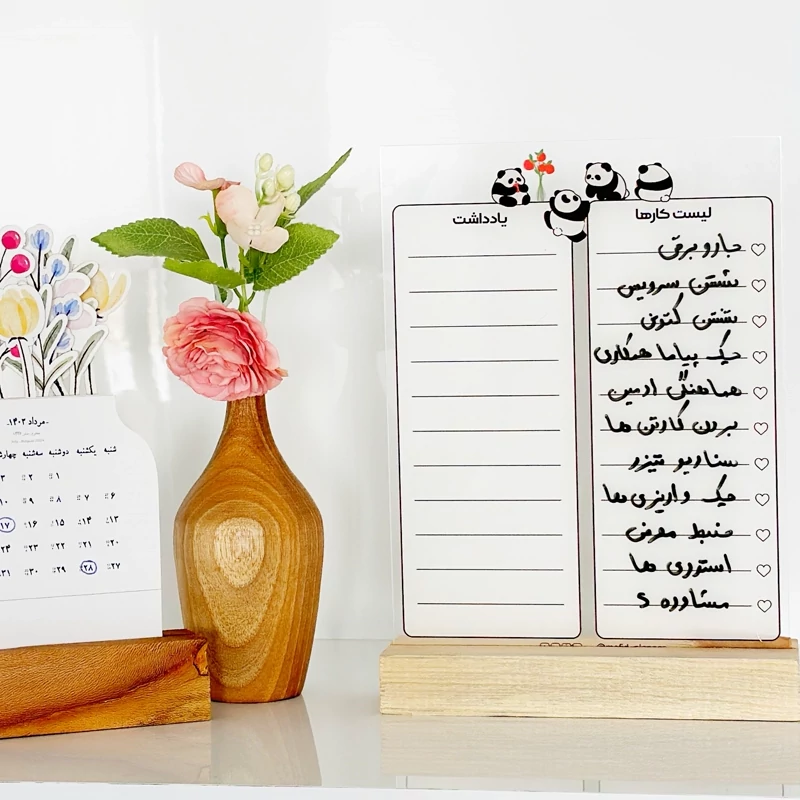 لیست کارها
جارو برقی
شستن سرویس
شستن کتونی
چیک پیاما همکاری
هماهنگی ارمین
بردن کارتن ها
سناریو تیزر
چیک واریزی ها
ضبط معرفی
استوری ها
مشاوره 5
یادداشت
مرداد ۱۴۰۲
شنبه یکشنبه دوشنبه سه‌شنبه
۱ ۲ ۳
۶ ۷ ۸ ۹ ۱۰
۱۳ ۱۴ ۱۵ ۱۶ ۱۷
۲۰ ۲۱ ۲۲ ۲۳ ۲۴
۲۷ ۲۸ ۲۹ ۳۰ ۳۱